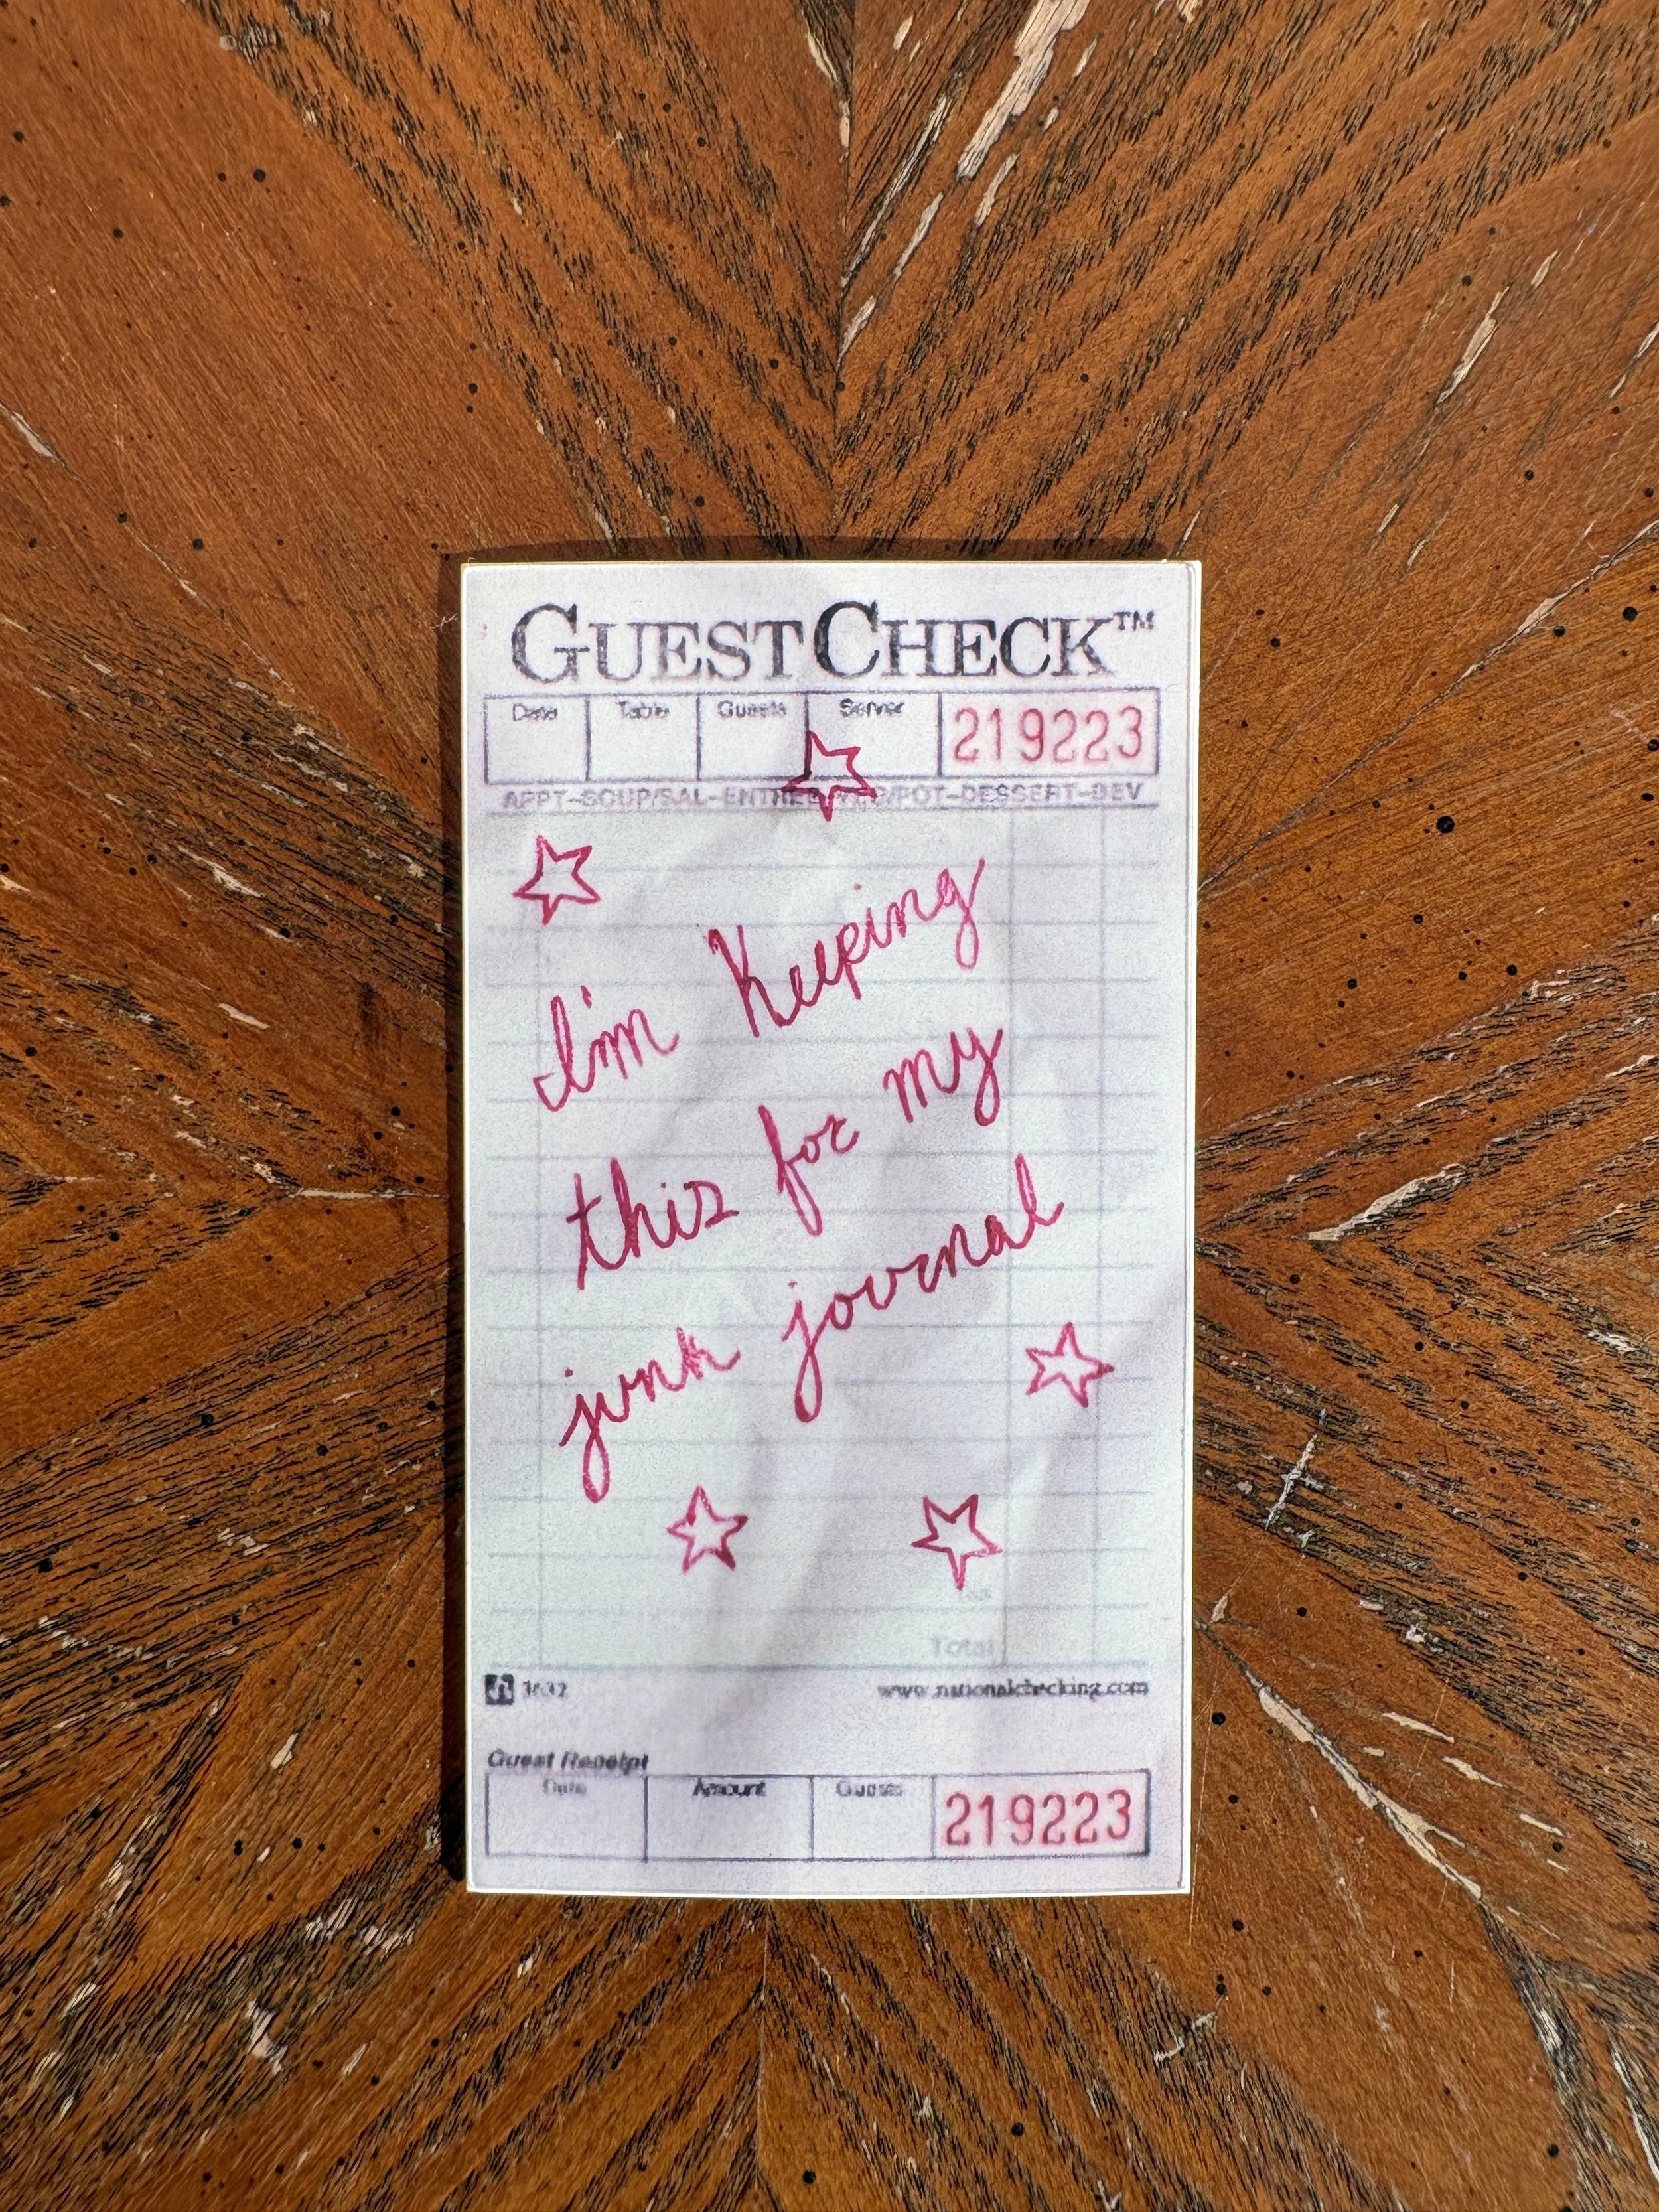 GUESTCHECK™
Date Table Guests Server 219223
APPT-SOUP/SAL-ENTREE-VEG/POT-DESSERT-BEV
I'm Keeping
this for my
junk journal
Total
3632 www.nationalchecking.com
Guest Receipt
Date Amount Guests 219223